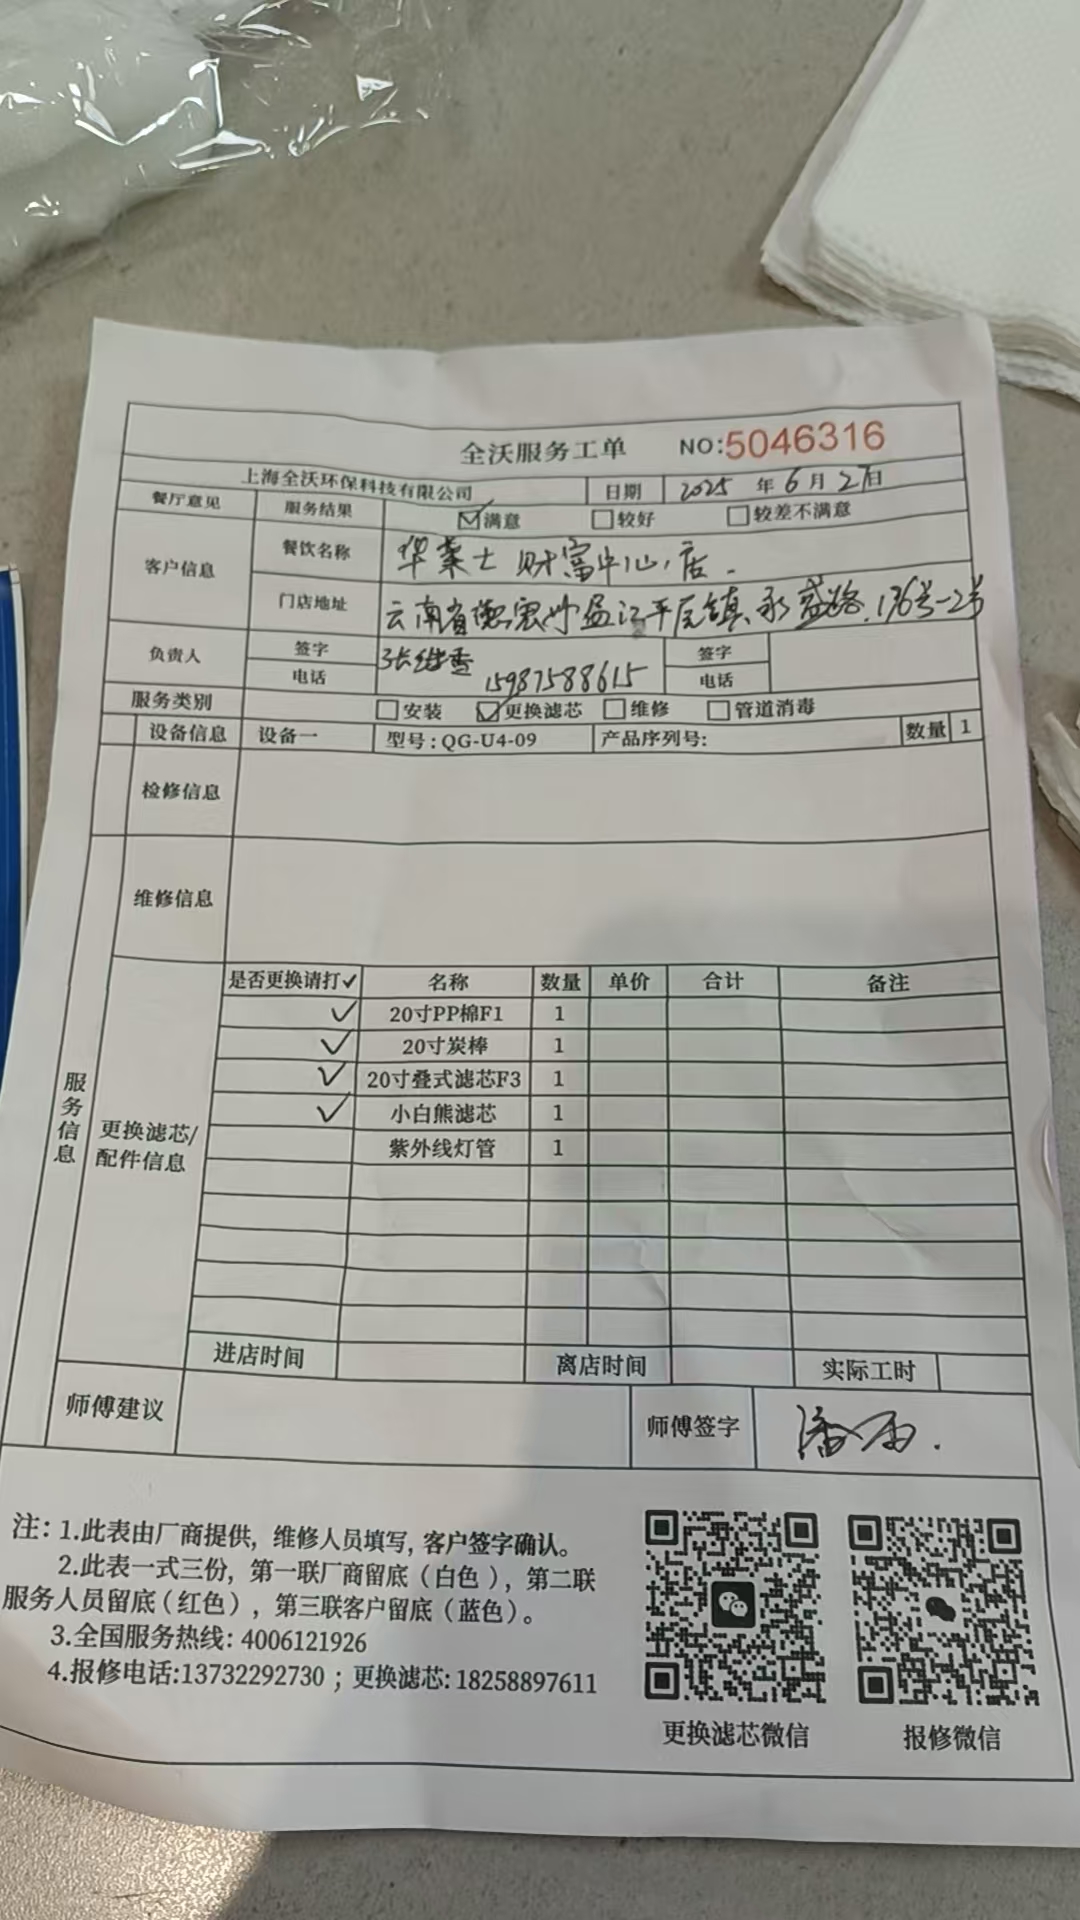 全沃服务工单 NO:5046316
上海全沃环保科技有限公司 日期 2025 年 6 月 27 日
餐厅意见 服务结果 ☑满意 □较好 □较差不满意
客户信息 餐饮名称 华莱士 财富中心店.
门店地址 云南省德宏州盈江平原镇永盛路176号-2号
负责人 签字 张维香 签字
电话 15987588615 电话
服务类别 □安装 ☑更换滤芯 □维修 □管道消毒
设备信息 设备一 型号:QG-U4-09 产品序列号: 数量 1
检修信息
维修信息
服务信息
更换滤芯/
配件信息
是否更换请打✓ 名称 数量 单价 合计 备注
✓ 20寸PP棉F1 1
✓ 20寸炭棒 1
✓ 20寸叠式滤芯F3 1
✓ 小白熊滤芯 1
紫外线灯管 1
进店时间 离店时间 实际工时
师傅建议 师傅签字
注: 1.此表由厂商提供, 维修人员填写, 客户签字确认。
2.此表一式三份, 第一联厂商留底（白色）, 第二联
服务人员留底（红色）, 第三联客户留底（蓝色）。
3.全国服务热线: 4006121926
4.报修电话:13732292730 ; 更换滤芯: 18258897611
更换滤芯微信 报修微信